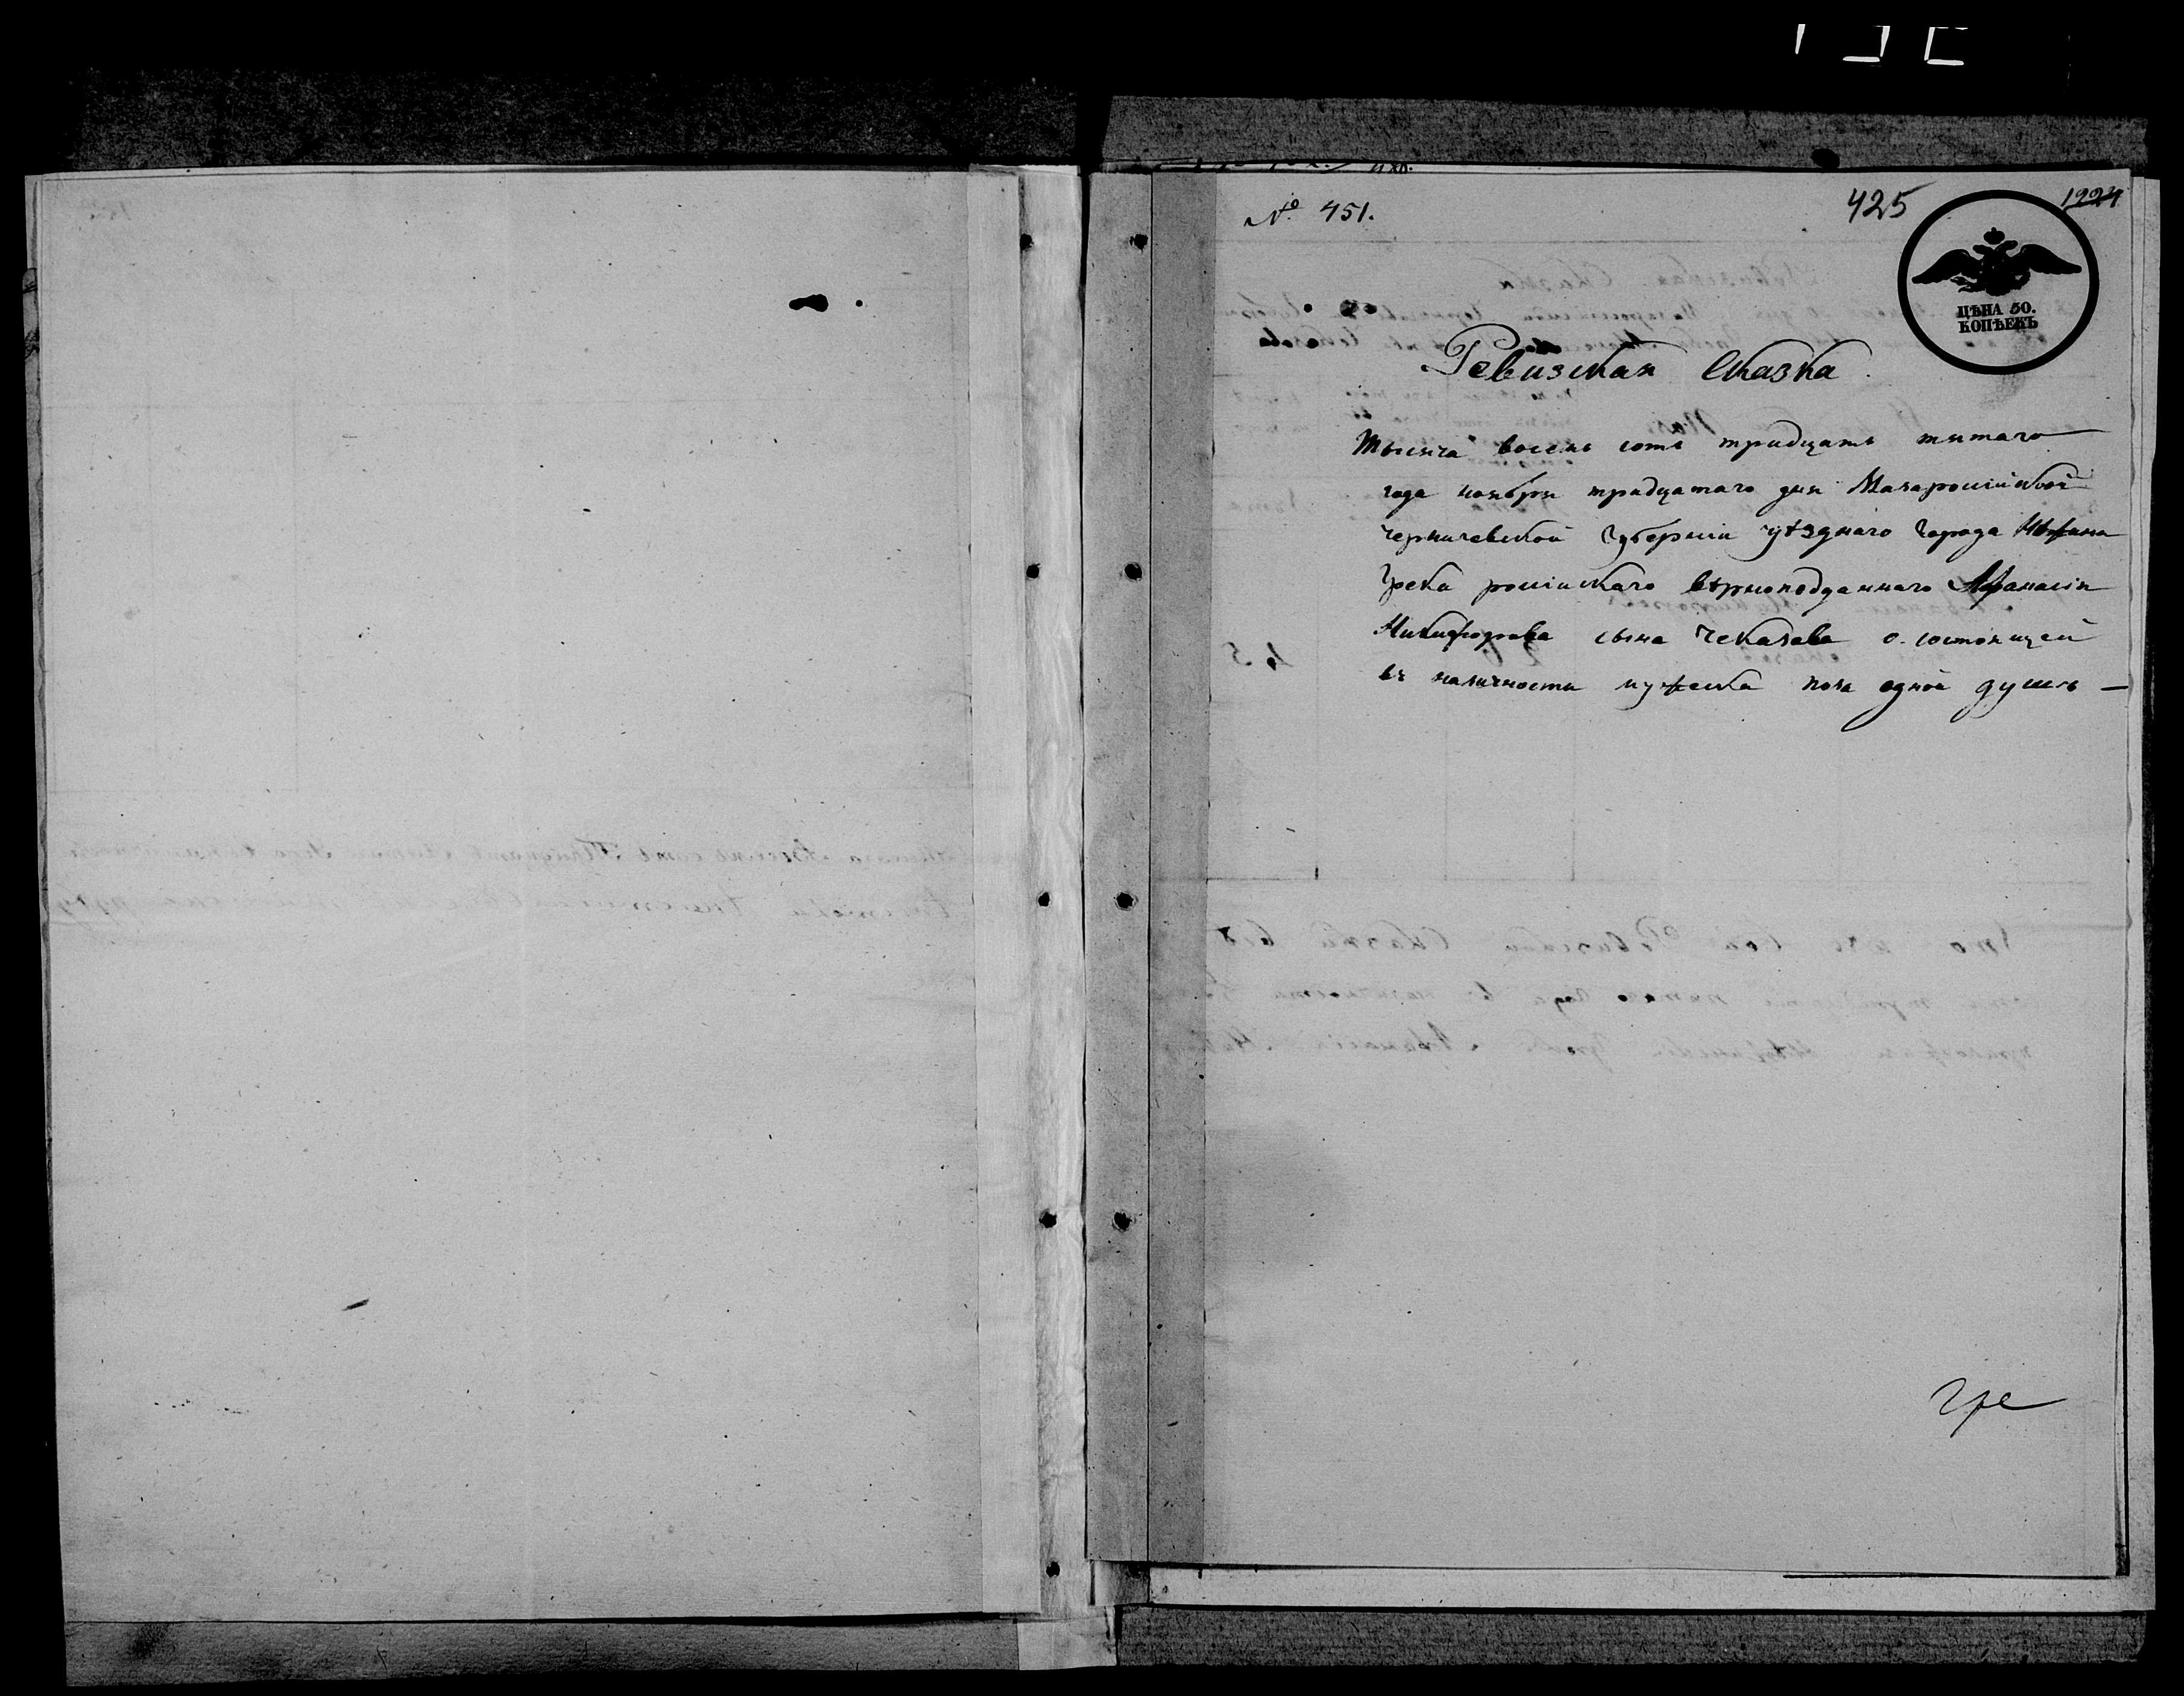 № 451.
425
1924
ЦѢНА 50.
КОПѢЕКЪ
Ревизская Сказка.
Тысяча восемь сотъ тридцать пятаго
года ноября тридцатаго дня Малоросiйской
Черниговской Губернiи уѣзднаго города Нѣжина
Грека росiйскаго вѣрноподданнаго Афанасiя
Никифорова сына Чекалова о состоящей
въ наличности мужеска пола одной души —
гре